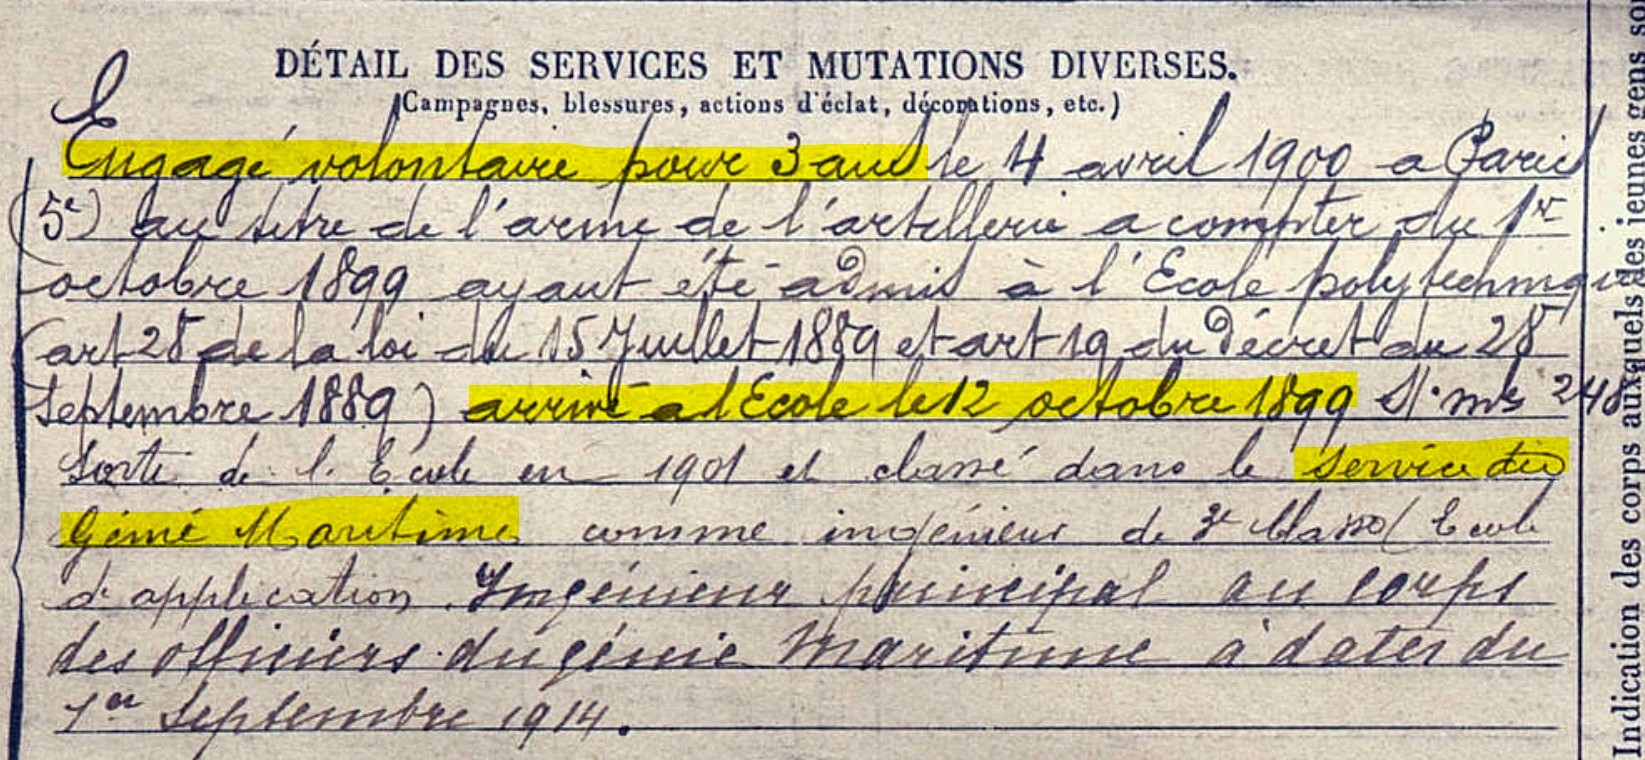 DÉTAIL DES SERVICES ET MUTATIONS DIVERSES.
(Campagnes, blessures, actions d'éclat, décorations, etc.)
Engagé volontaire pour 3 ans le 4 avril 1900 a Paris
(5e) au titre de l'arme de l'artillerie a compter du 1er
octobre 1899 ayant été admis à l'Ecole polytechnique
(art 28 de la loi du 15 Juillet 1889 et art 19 du Décret du 28
septembre 1889) arrivé a l'Ecole le 12 octobre 1899 248
Sorti de l'Ecole en 1901 et classé dans le Service du
Génie Maritime comme ingénieur de 3e Classe (Ecole
d'application. Ingénieur principal au corps
des officiers du génie Maritime à dater du
1er Septembre 1914.
Indication des corps auxquels des jeunes gens